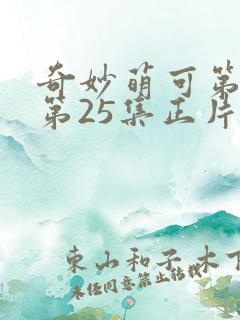 奇妙萌可第
第25集正片
東山和子 木下
未经同意禁止转载